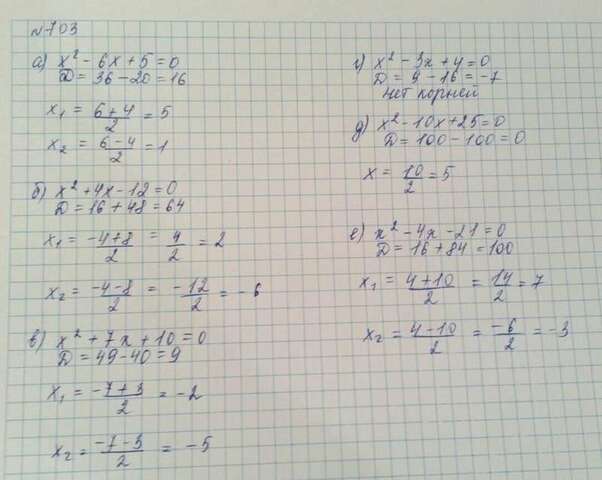 № 703
а) x² - 6x + 5 = 0
D = 36 - 20 = 16
x₁ = (6+4)/2 = 5
x₂ = (6-4)/2 = 1
б) x² + 4x - 12 = 0
D = 16 + 48 = 64
x₁ = (-4+8)/2 = 4/2 = 2
x₂ = (-4-8)/2 = -12/2 = -6
в) x² + 7x + 10 = 0
D = 49 - 40 = 9
x₁ = (-7+3)/2 = -2
x₂ = (-7-3)/2 = -5
г) x² - 3x + 4 = 0
D = 9 - 16 = -7
Нет корней
д) x² - 10x + 25 = 0
D = 100 - 100 = 0
x = 10/2 = 5
е) x² - 4x - 21 = 0
D = 16 + 84 = 100
x₁ = (4+10)/2 = 14/2 = 7
x₂ = (4-10)/2 = -6/2 = -3